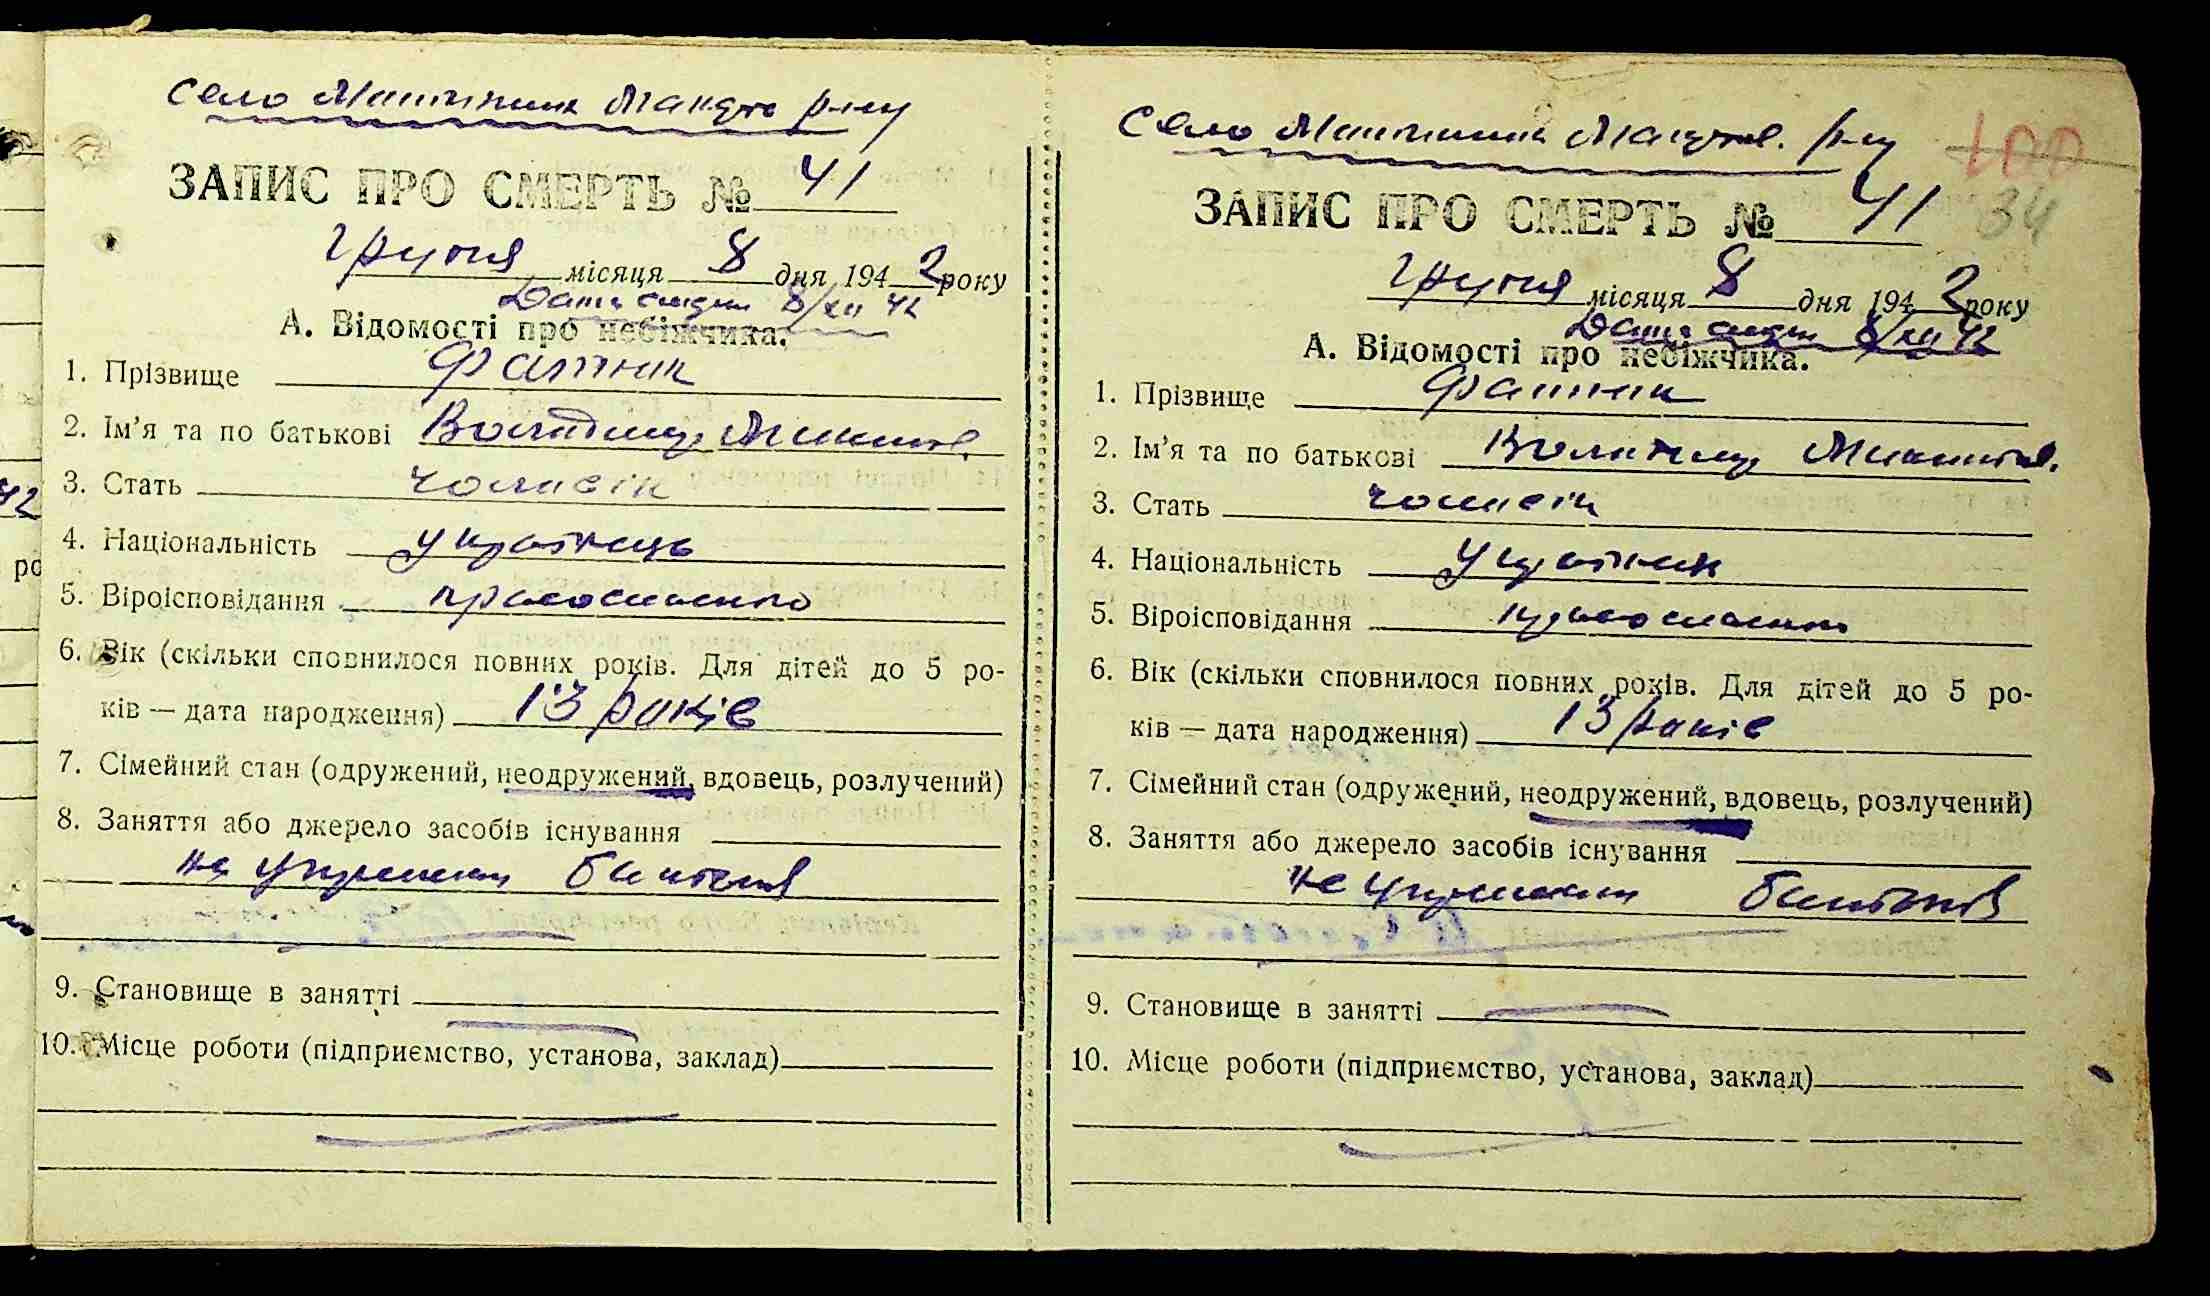 Село р-ну
ЗАПИС ПРО СМЕРТЬ № 41
грудня місяця 8 дня 1942 року
Дата смерти 8/XII 42
А. Відомості про небіжчика.
1. Прізвище
2. Ім’я та по батькові Володимир
3. Стать чоловік
4. Національність українець
5. Віроісповідання православно
6. Вік (скільки сповнилося повних років. Для дітей до 5 ро-
ків — дата народження) 13 років
7. Сімейний стан (одружений, неодружений, вдовець, розлучений)
8. Заняття або джерело засобів існування
на утриманні батьків
9. Становище в занятті
10. Місце роботи (підприємство, установа, заклад)
Село р-ну
100
34
ЗАПИС ПРО СМЕРТЬ № 41
грудня місяця 8 дня 1942 року
Дата смерти 8/XII 42
А. Відомості про небіжчика.
1. Прізвище
2. Ім’я та по батькові Володимир
3. Стать чоловік
4. Національність
5. Віроісповідання православно
6. Вік (скільки сповнилося повних років. Для дітей до 5 ро-
ків — дата народження) 13 років
7. Сімейний стан (одружений, неодружений, вдовець, розлучений)
8. Заняття або джерело засобів існування
на утриманні батьків
9. Становище в занятті
10. Місце роботи (підприємство, установа, заклад)